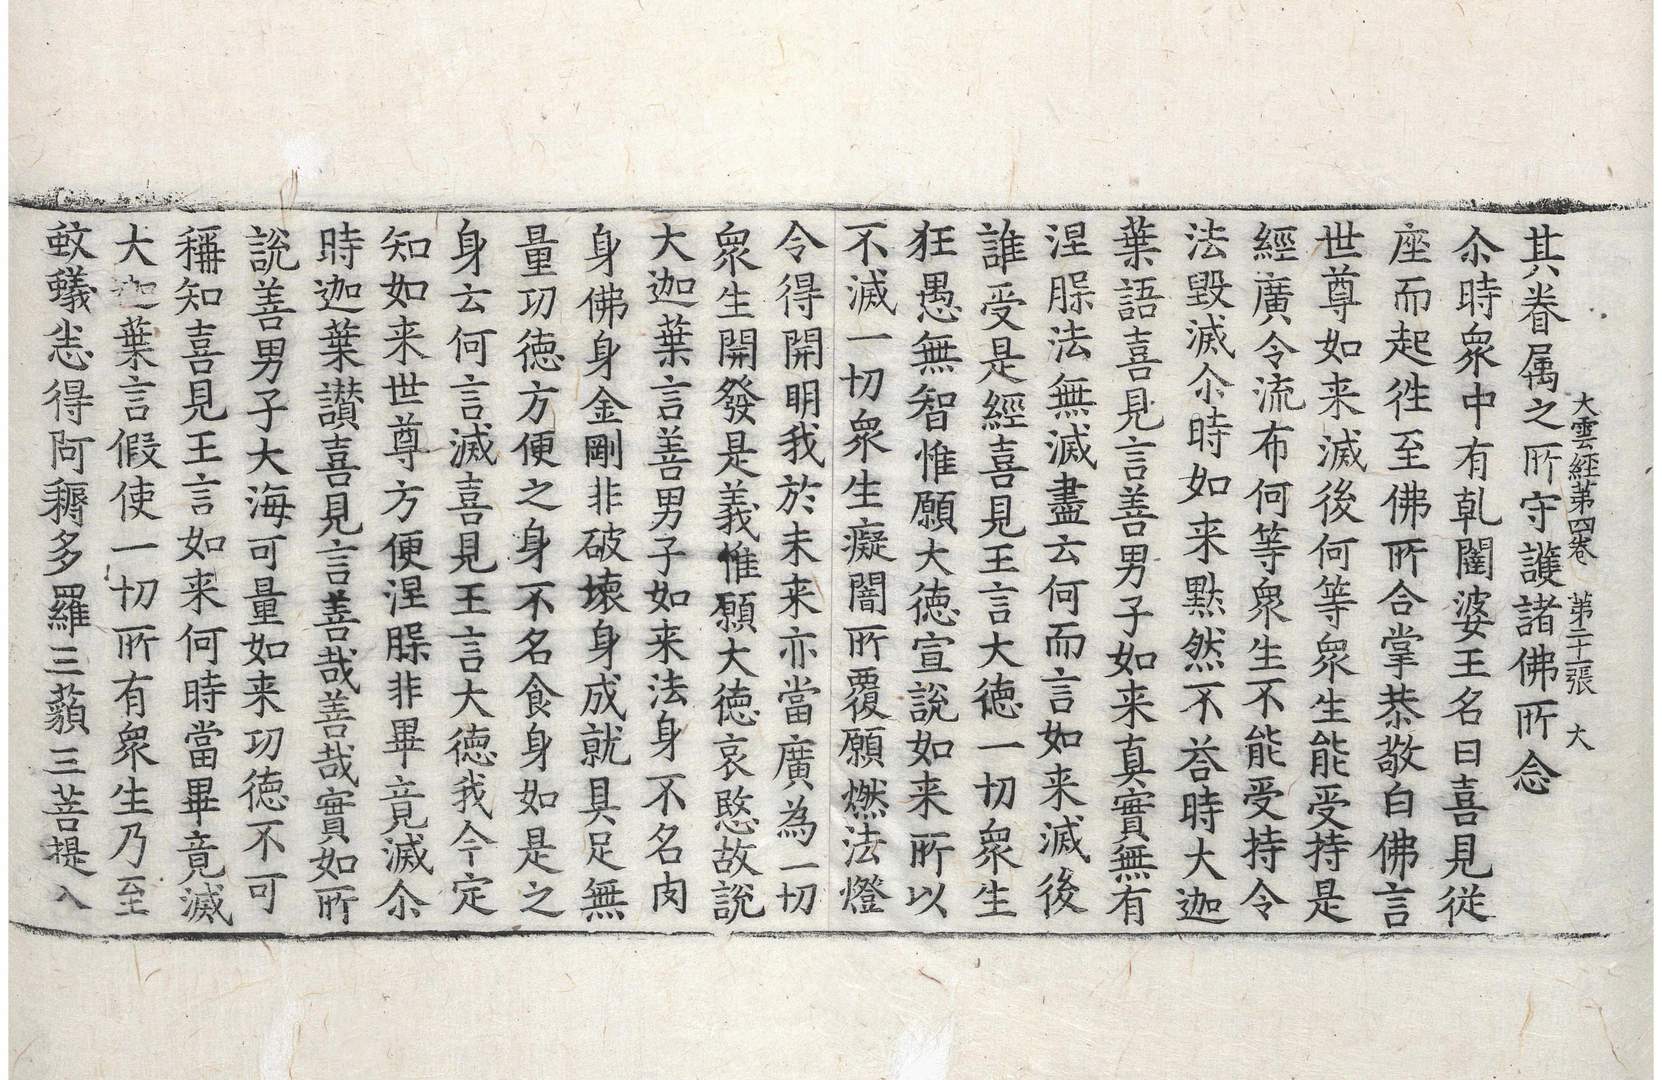 大雲經第四卷　第二十一張　大
其眷属之所守護諸佛所念
尒時衆中有乹闥婆王名曰喜見從
座而起徃至佛所合掌恭敬白佛言
世尊如来滅後何等衆生能受持是
經廣令流布何等衆生不能受持令
法毀滅尒時如来黙然不荅時大迦
葉語喜見言善男子如来真實無有
涅膍法無滅盡云何而言如来滅後
誰受是經喜見王言大徳一切衆生
狂愚無智惟願大徳宣說如来所以
不滅一切衆生癡闇所覆願燃法燈
令得開明我於未来亦當廣為一切
衆生開發是義惟願大徳哀愍故說
大迦葉言善男子如来法身不名肉
身佛身金剛非破壊身成就具足無
量功徳方便之身不名食身如是之
身云何言滅喜見王言大徳我今定
知如来世尊方便涅膍非畢竟滅尒
時迦葉讃喜見言善哉善哉實如所
說善男子大海可量如来功徳不可
稱知喜見王言如来何時當畢竟滅
大迦葉言假使一切所有衆生乃至
蚊蟻悉得阿耨多羅三藐三菩提入